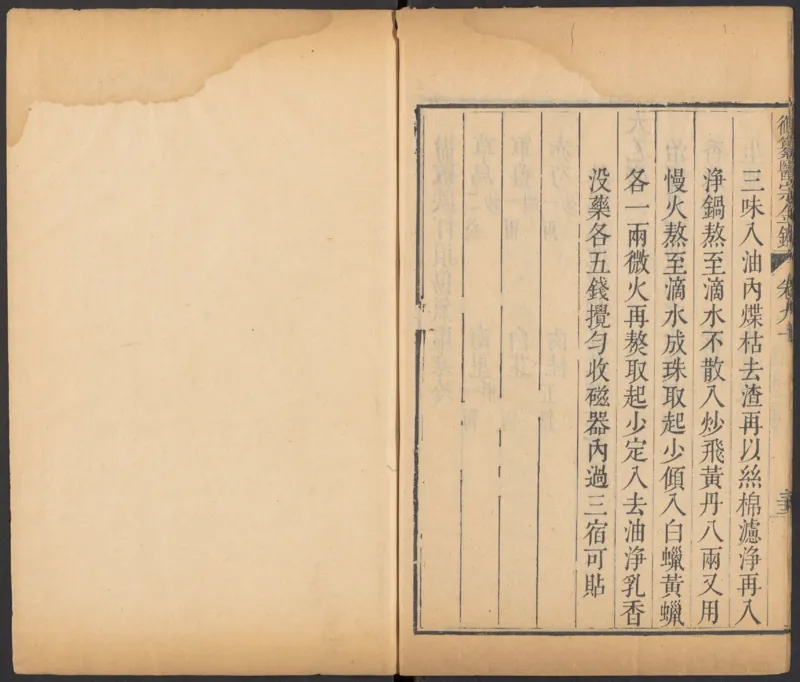 三味入油內煠枯去渣再以絲棉濾淨再入
淨鍋熬至滴水不散入炒飛黃丹八兩又用
慢火熬至滴水成珠取起少傾入白蠟黃蠟
各一兩微火再熬取起少定入去油淨乳香
没藥各五錢攪勻收磁器內過三宿可貼
御纂醫宗金鑑
卷九十